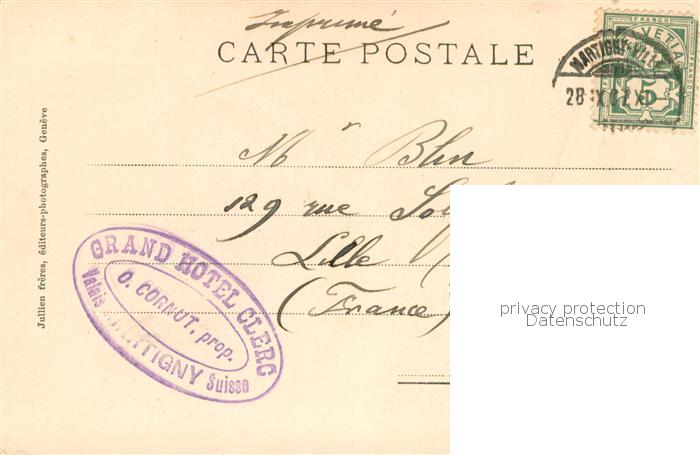 Imprimé
CARTE POSTALE
FRANCO
HELVETIA
MARTIGNY-VILLE
28 IX 07 XI
5
Mr Blin
129 rue
Lille
(France)
GRAND HOTEL CLERC
O. CORNUT, prop.
Valais MARTIGNY Suisse
Jullien frères, éditeurs-photographes, Genève
privacy protection
Datenschutz